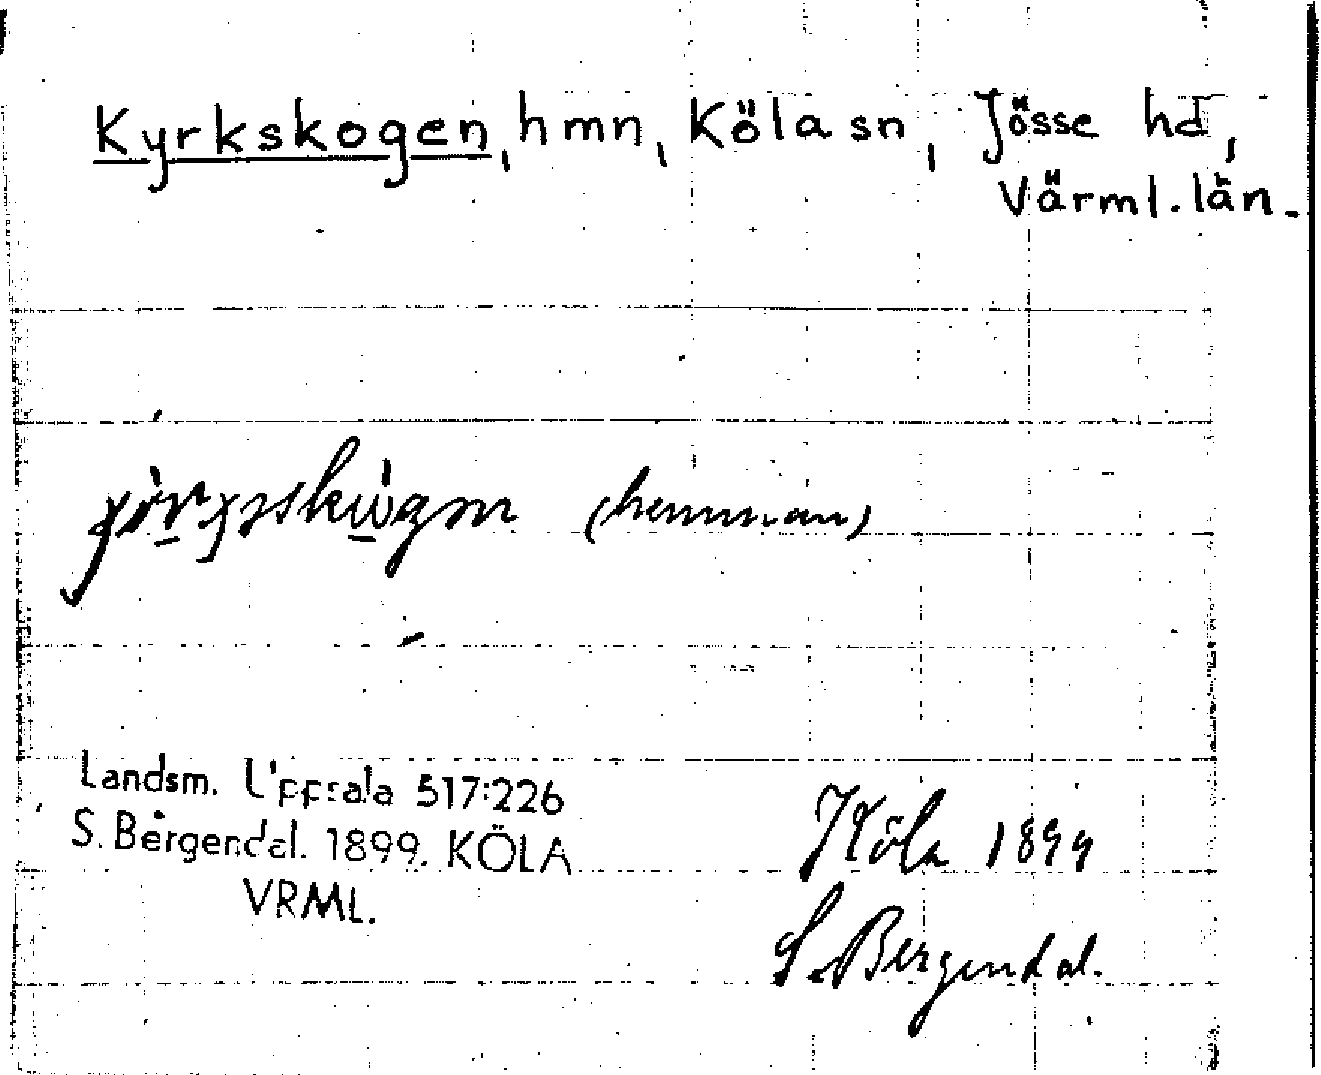 Kyrkskogen, hmn, Köla sn, Jösse hd,
Värml. län.
(hemman)
Landsm. Uppsala 517:226
S. Bergendal. 1899. KÖLA
VRML.
Köla 1899
S. Bergendal.